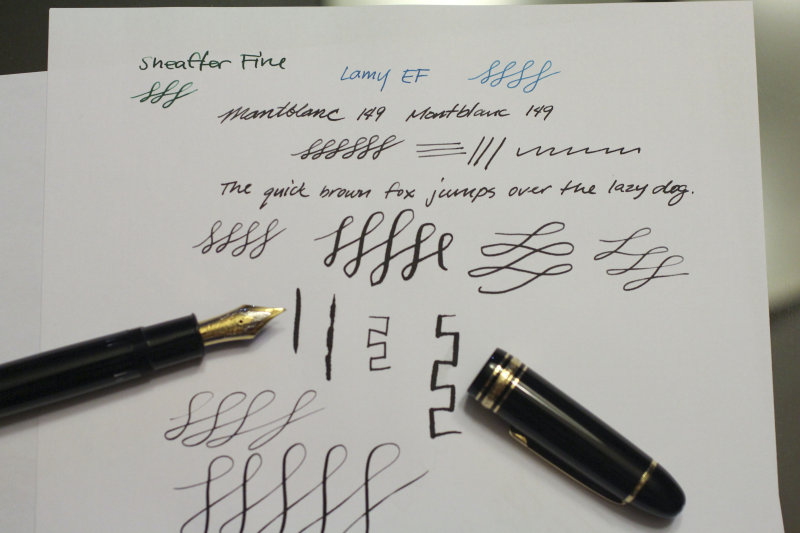 Sheaffer Fine
Lamy EF
Montblanc 149 Montblanc 149
The quick brown fox jumps over the lazy dog.